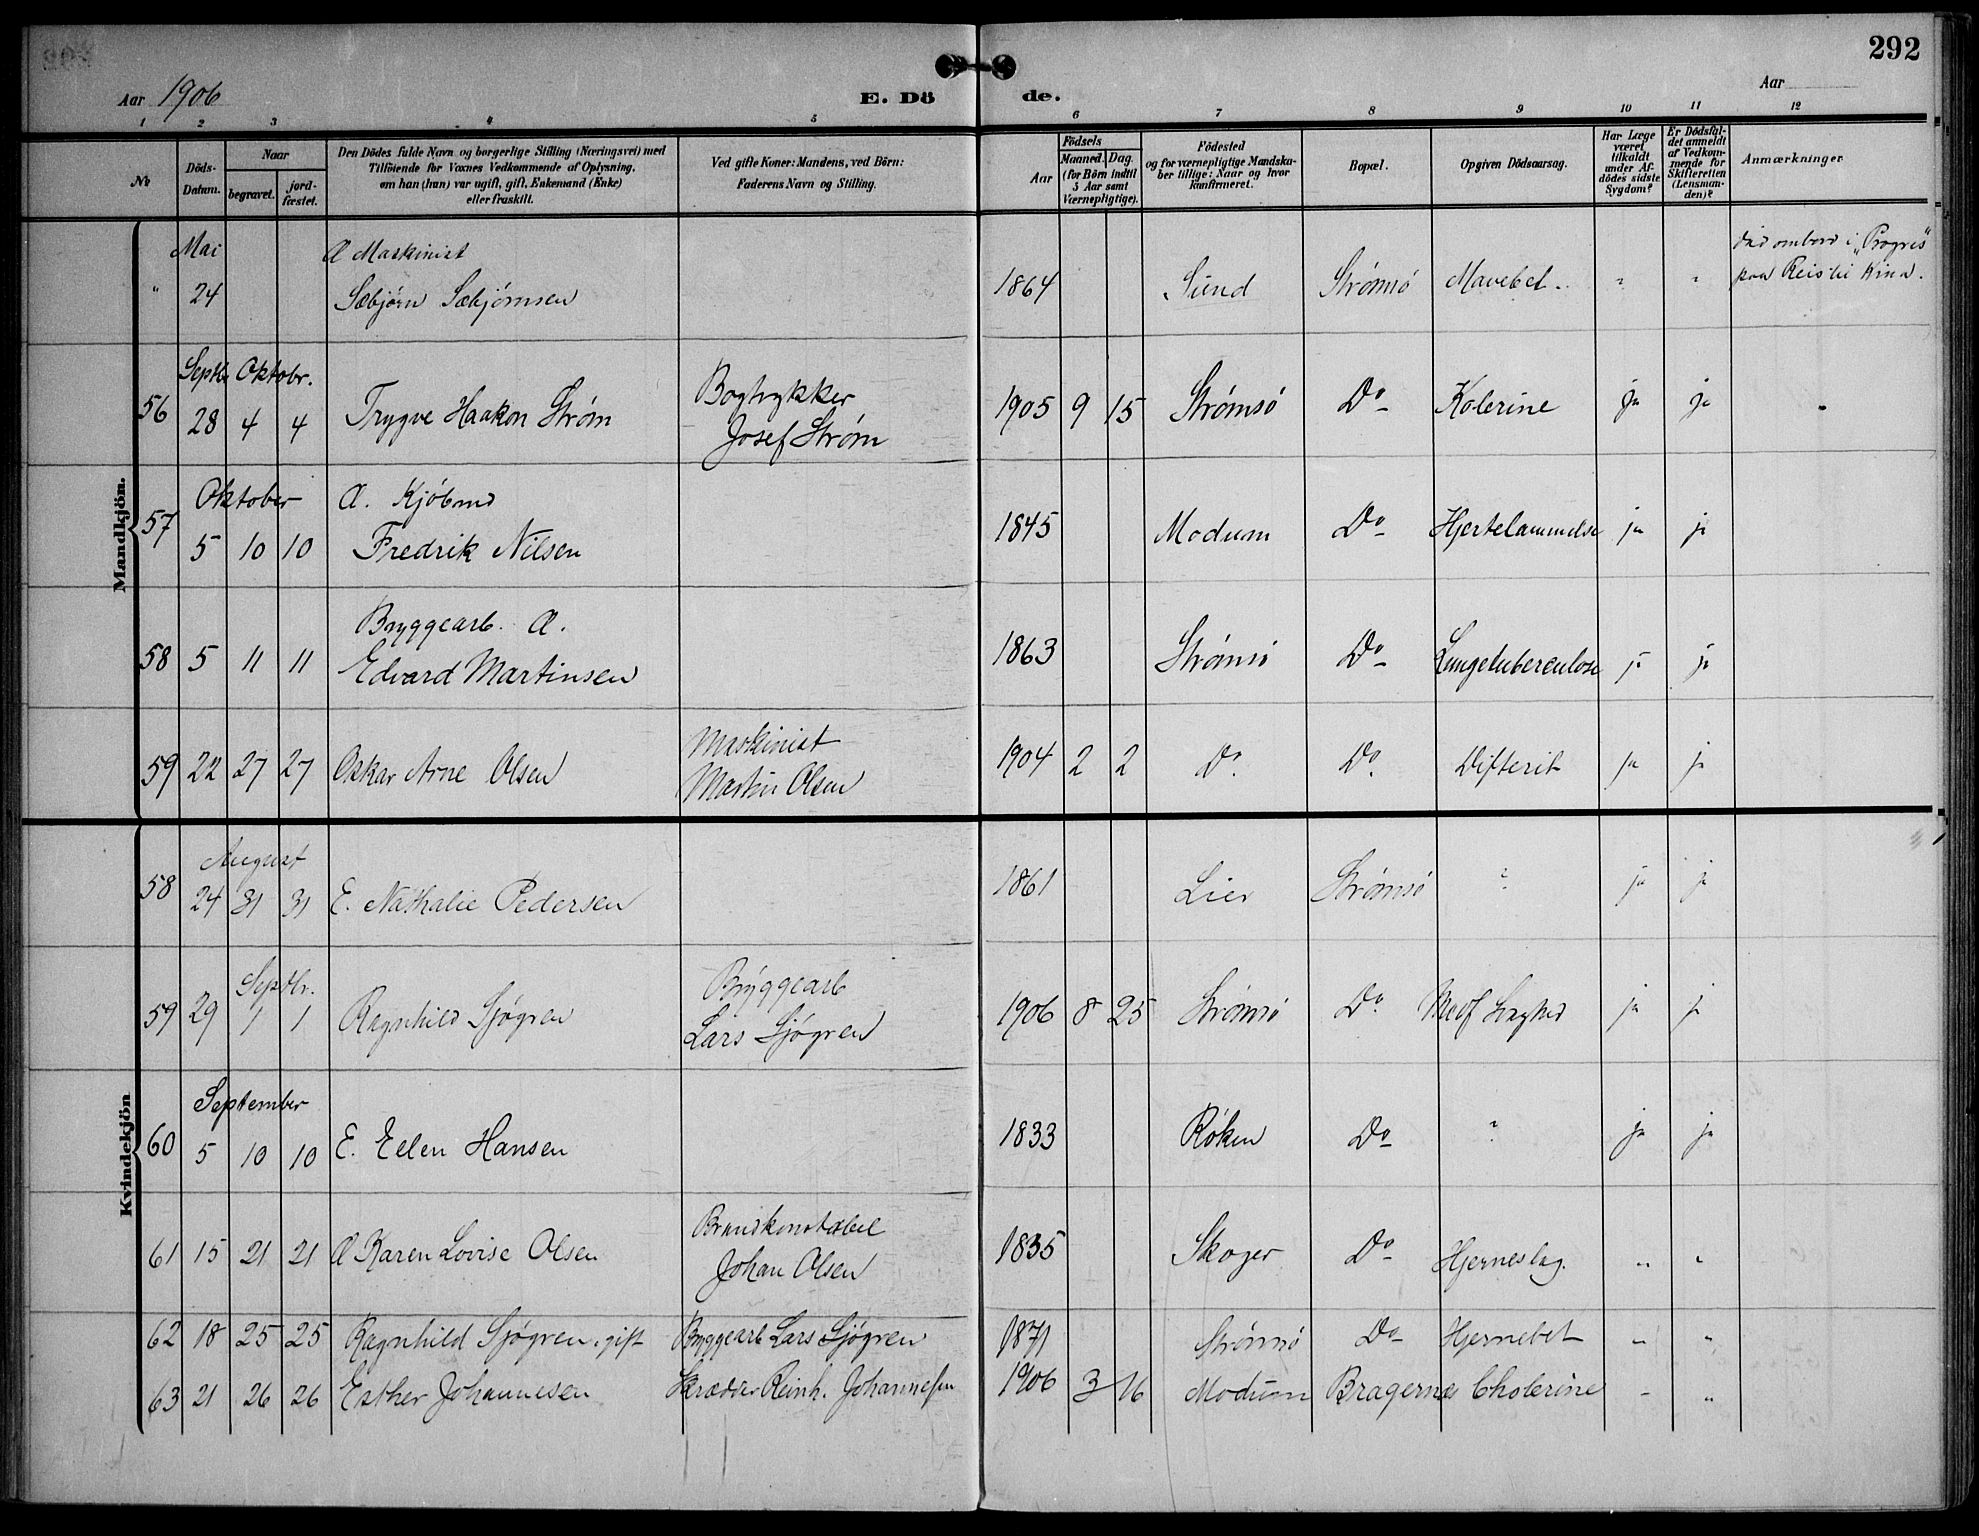 292
Aar 1906
E. Dö de.
Aar
1 2 3 4 5 6 7 8 9 10 11 12
No
Döds-Datum.
Naar
begravet. jord-fæstet.
Den Dödes fulde Navn og borgerlige Stilling (Næringsvei) med
Tilföiende for Voxnes Vedkommende af Oplysning,
om han (hun) var ugift, gift, Enkemand (Enke)
eller fraskilt.
Ved gifte Koner: Mandens, ved Börn:
Faderens Navn og Stilling.
Födsels
Aar
Maaned. Dag.
(for Börn indtil
5 Aar samt
Værnepligtige).
Födested
og for værnepligtige Mandska-
ber tillige: Naar og hvor
konfirmeret.
Bopæl.
Opgiven Dödsaarsag.
Har Læge
været
tilkaldt
under Af-
dödes sidste
Sygdom?
Er Dödsfal-
det anmeldt
af Vedkom-
mende for
Skifteretten
(Lensman-
den)?
Anmærkninger
Mandkjön.
Mai Maskinist død ombord i "Progres"
" 24 Sæbjørn Sæbjørnsen 1864 Sund Strømsö Mavebet. " " paa Reis til Kina.
Septbr Oktobr. Bogtrykker
56 28 4 4 Trygve Haakon Strøm Josef Strøm 1905 9 15 Strømsö Do Kolerine ja ja "
Oktober Kjöbmd
57 5 10 10 Fredrik Nilsen 1845 Modum Do Hjertelammelse ja ja
Bryggearb.
58 5 11 11 Edvard Martinsen 1863 Strømsö Do Lungetuberculose ja ja
Maskinist
59 22 27 27 Oskar Arne Olsen Martin Olsen 1904 2 2 Do Do Difterit ja ja
Kvindekjön
August
58 24 31 31 E. Nathalie Pedersen 1861 Lier Strømsö ? ja ja
Septbr. Bryggearb
59 29 1 1 Ragnhild Sjögren Lars Sjögren 1906 8 25 Strømsö Do Medf Svaghed ja ja
September
60 5 10 10 E. Ellen Hansen 1833 Røken Do ? ja ja
Brandkonstabel
61 15 21 21 Karen Lovise Olsen Johan Olsen 1835 Skoger Do Hjerneslag. " "
62 18 25 25 Ragnhild Sjögren, gift Bryggearb Lars Sjögren 1871 Strømsö Do Hjernebet " "
63 21 26 26 Esther Johannesen Skrædder Reinh. Johannesen 1906 3 16 Modum Bragernæs Cholerine " "